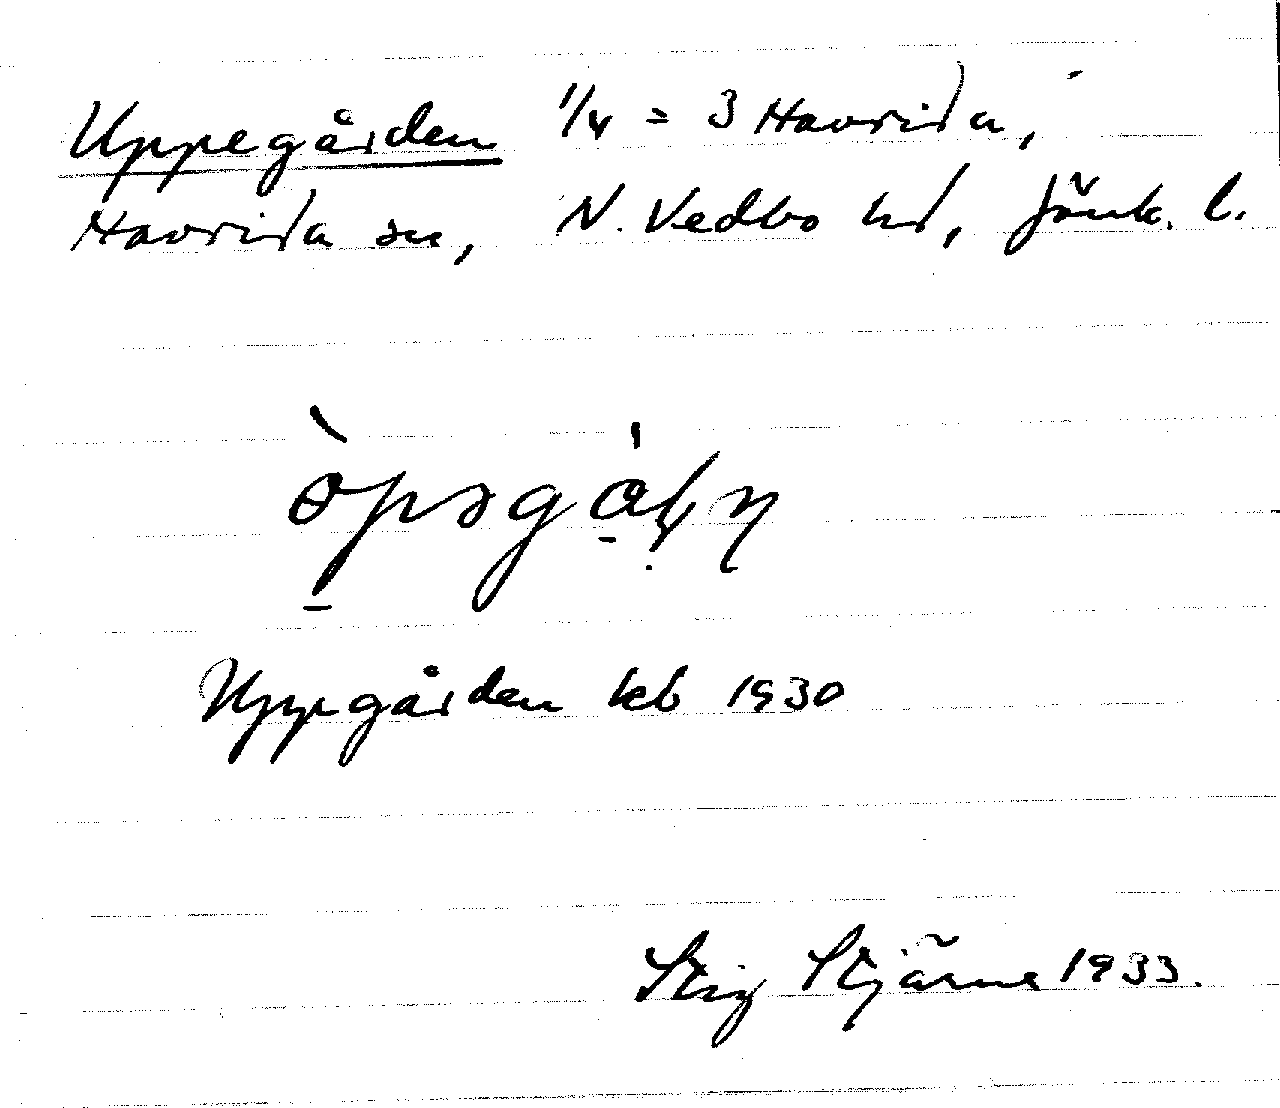 Uppegården 1/4 = 3 Haurida,
Haurida sn, N. Vedbo hd, Jönk. l.
Uppegården kb 1930
Stig Stjärne 1933.